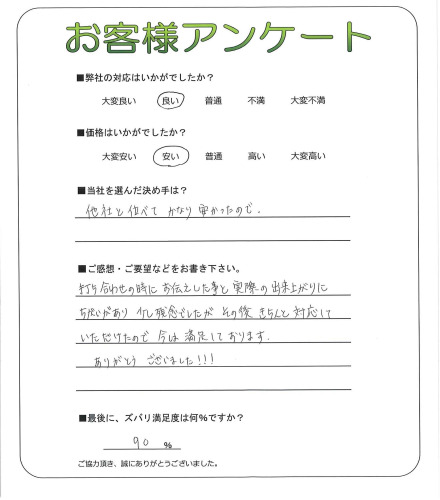 お客様アンケート
■弊社の対応はいかがでしたか？
大変良い 良い 普通 不満 大変不満
■価格はいかがでしたか？
大変安い 安い 普通 高い 大変高い
■当社を選んだ決め手は？
他社と比べて かなり 安かったので.
■ご感想・ご要望などをお書き下さい。
打ち合わせの時に お伝えした事と 実際の 出来上がりに
ちがいがあり 少し残念でしたが その後 きちんと 対応して
いただけたので 今は 満足しております.
ありがとう ございました!!!
■最後に、ズバリ満足度は何%ですか？
90 %
ご協力頂き、誠にありがとうございました。